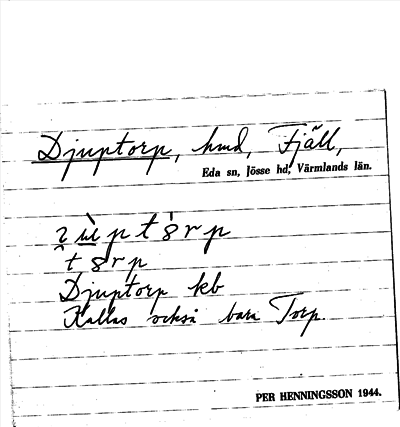 Djuptorp, hmd, Fjäll,
Eda sn, Jösse hd, Värmlands län.
t 8 r p
Djuptorp kb
Kallas också bara Torp.
PER HENNINGSSON 1944.